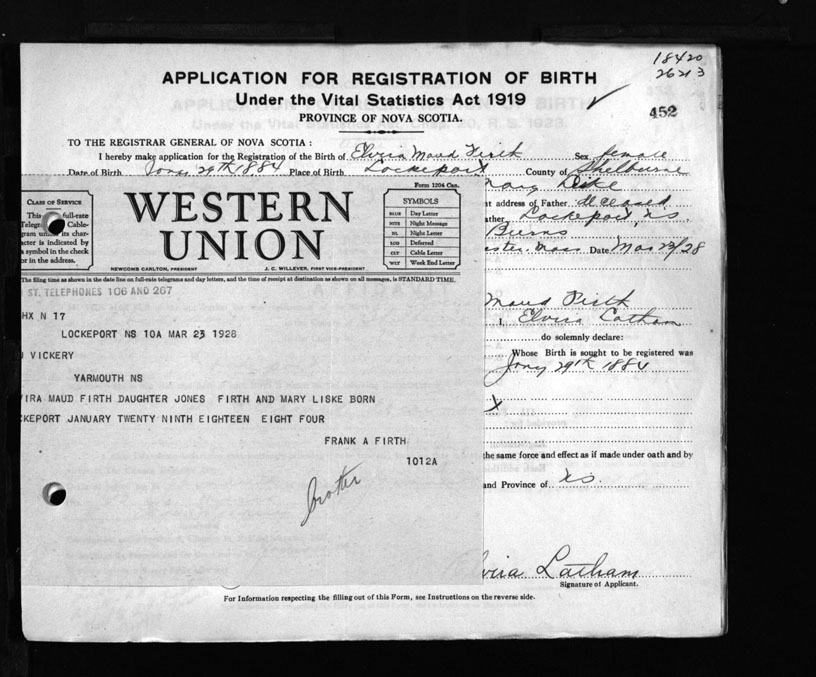 18420
26213
APPLICATION FOR REGISTRATION OF BIRTH
Under the Vital Statistics Act 1919
PROVINCE OF NOVA SCOTIA.
452
TO THE REGISTRAR GENERAL OF NOVA SCOTIA :
I hereby make application for the Registration of the Birth of Elvira Maud Firth Sex female
Date of Birth Jany 29th 1884 Place of Birth Lockeport County of Shelburne
Mary Liske
t address of Father Deceased
ather Lockeport, NS
Burns
ester. Mass Date Mar 23/28
Maud Firth
I, Elvira Latham
do solemnly declare:
Whose Birth is sought to be registered was
Jany 29th 1884
the same force and effect as if made under oath and by
and Province of NS.
lvira Latham
Signature of Applicant.
For Information respecting the filling out of this Form, see Instructions on the reverse side.
Form 1204 Can.
CLASS OF SERVICE
This full-rate
Telegram Cable-
gram its char-
acter is indicated by
a symbol in the check
or in the address.
WESTERN
UNION
NEWCOMB CARLTON, PRESIDENT
J. C. WILLEVER, FIRST VICE-PRESIDENT
SYMBOLS
BLUE Day Letter
NITE Night Message
NL Night Letter
LCO Deferred
CLT Cable Letter
WLT Week End Letter
The filing time as shown in the date line on full-rate telegrams and day letters, and the time of receipt at destination as shown on all messages, is STANDARD TIME.
ST. TELEPHONES 106 AND 267
HX N 17
LOCKEPORT NS 10A MAR 23 1928
VICKERY
YARMOUTH NS
VIRA MAUD FIRTH DAUGHTER JONES FIRTH AND MARY LISKE BORN
CKEPORT JANUARY TWENTY NINTH EIGHTEEN EIGHT FOUR
FRANK A FIRTH
1012A
brother